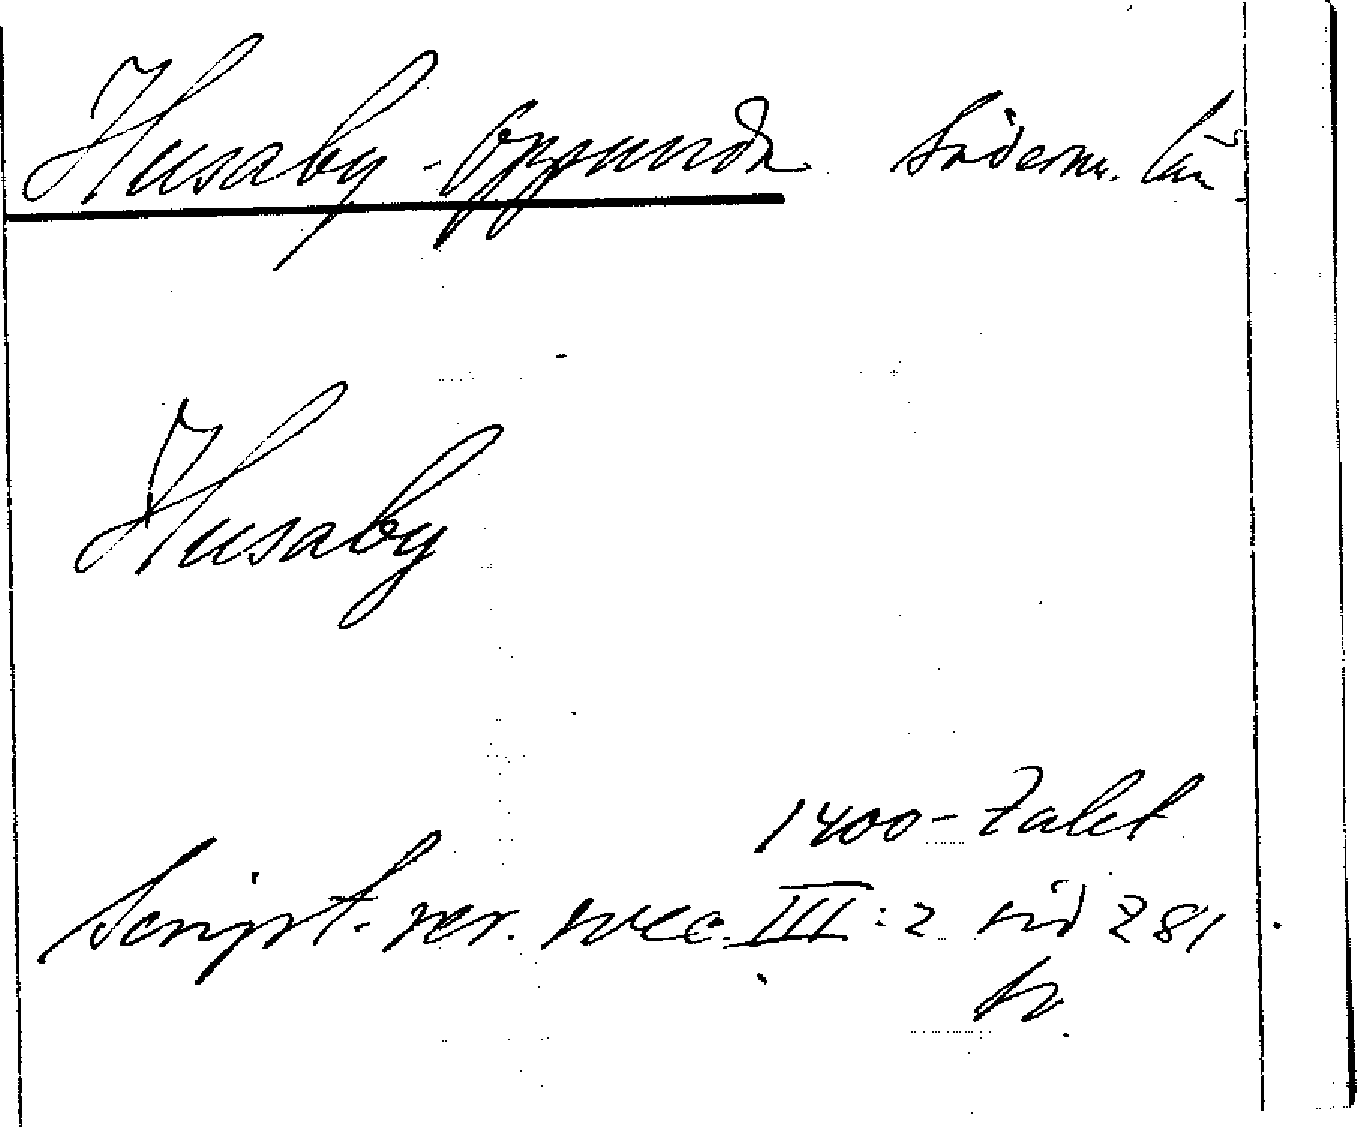 Husaby-Oppunda Söderm. län
Husaby
1400-talet
Script. rer. svec. III:2 sid 281
tr.